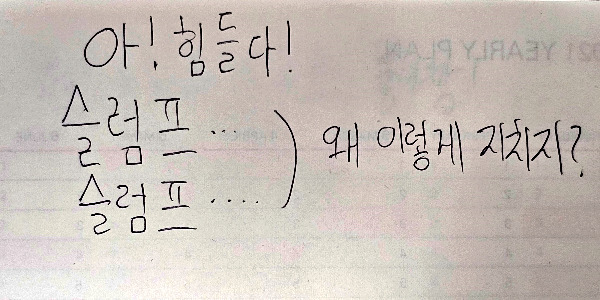 아! 힘들다!
슬럼프...
슬럼프....
왜 이렇게 지치지?
2021 YEARLY PLAN